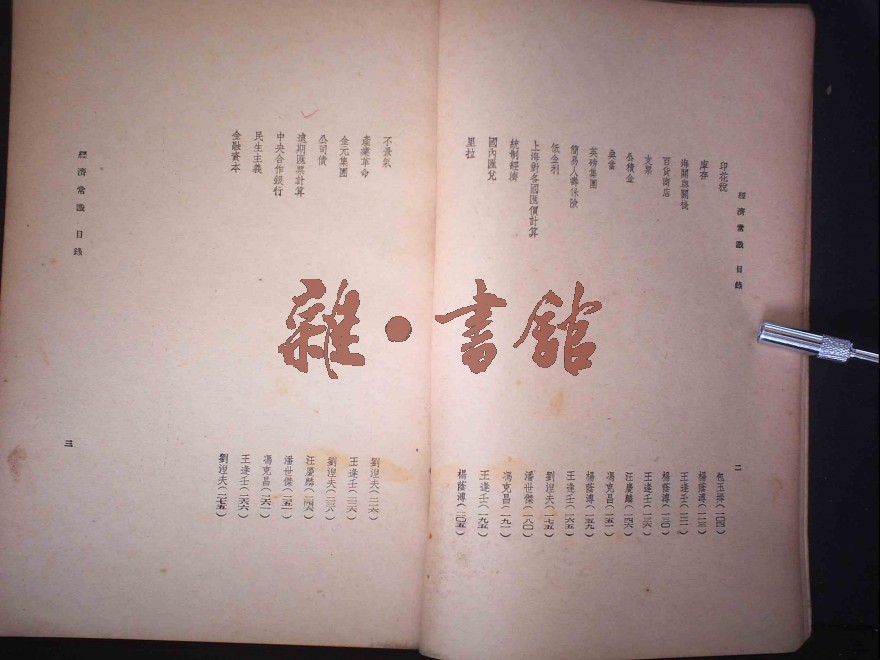 經濟常識 目錄
二
印花稅 包玉墀(一〇四)
庫存 楊蔭溥(一一三)
海關與關棧 王逢壬(一二一)
百貨商店 楊蔭溥(一三〇)
支票 王逢壬(一三六)
公積金 汪慶麟(一四六)
典當 馮克昌(一五一)
英磅集團 楊蔭溥(一五九)
簡易人壽保險 王逢壬(一六五)
低金利 劉湼夫(一七五)
上海對各國匯價計算 潘世傑(一八〇)
統制經濟 馮克昌(一九一)
國內匯兌 王逢壬(一九五)
里拉 楊蔭溥(二〇五)
不景氣 劉湼夫(二一六)
產業革命 王逢壬(二二六)
金元集團 劉湼夫(二三八)
公司債 汪慶麟(二四六)
遠期匯票計算 潘世傑(二五一)
中央合作銀行 馮克昌(二六一)
民生主義 王逢壬(二六六)
金融資本 劉湼夫(二七五)
經濟常識 目錄
三
雜·書館